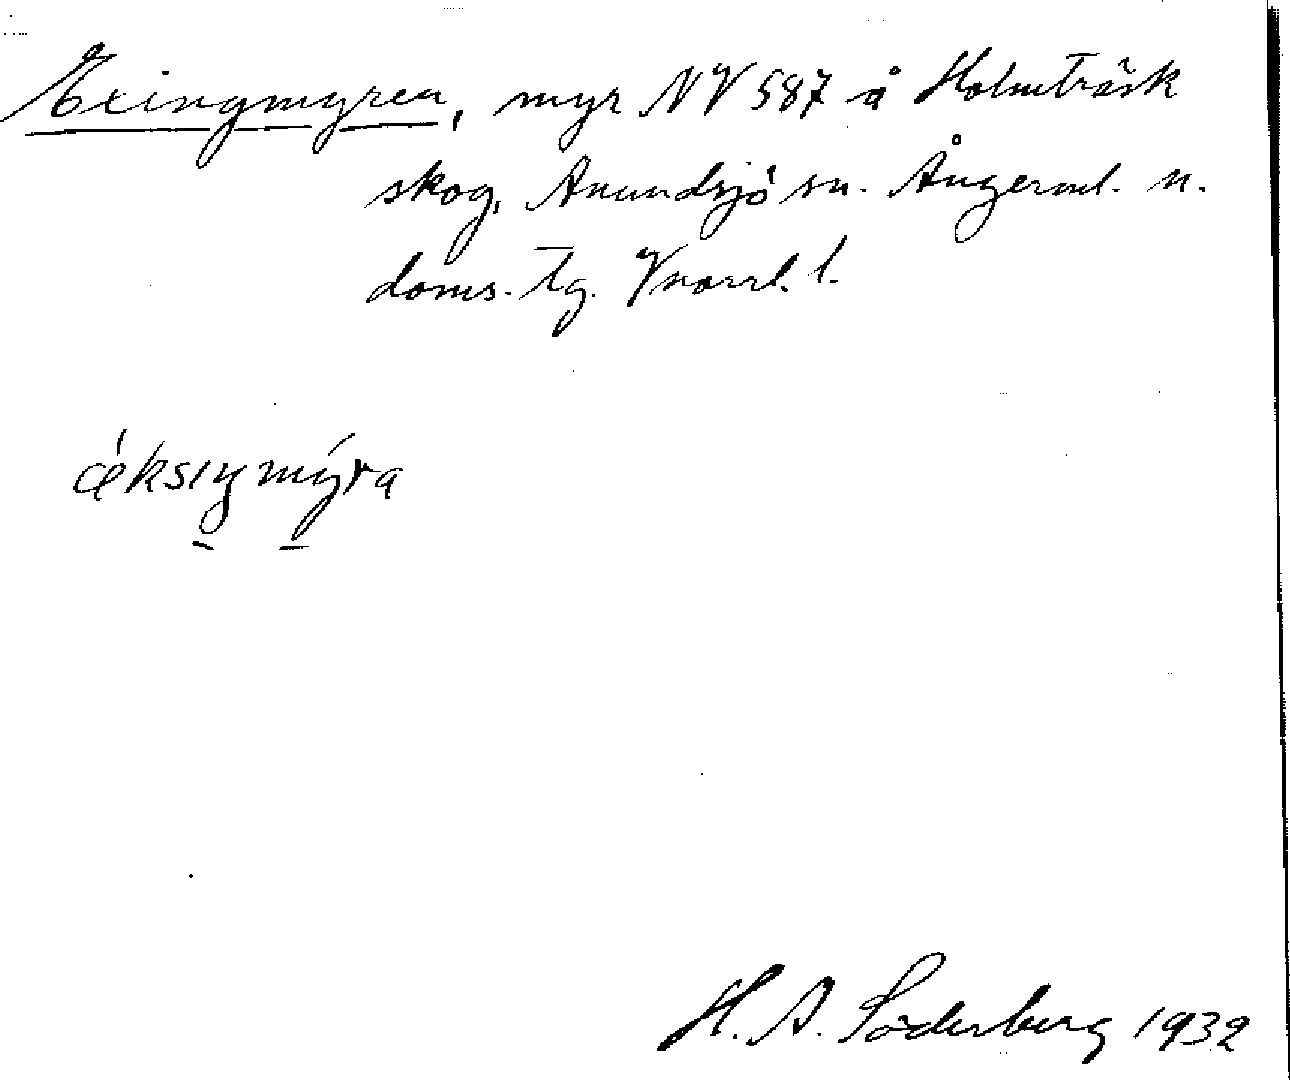 Exingmyren, myr NV 587 å Holmträsk
skog, Anundsjö sn. Ångerml. n.
doms. tg. Vnorrl. l.
ǽksıŋmýra
H. A. Söderberg 1932